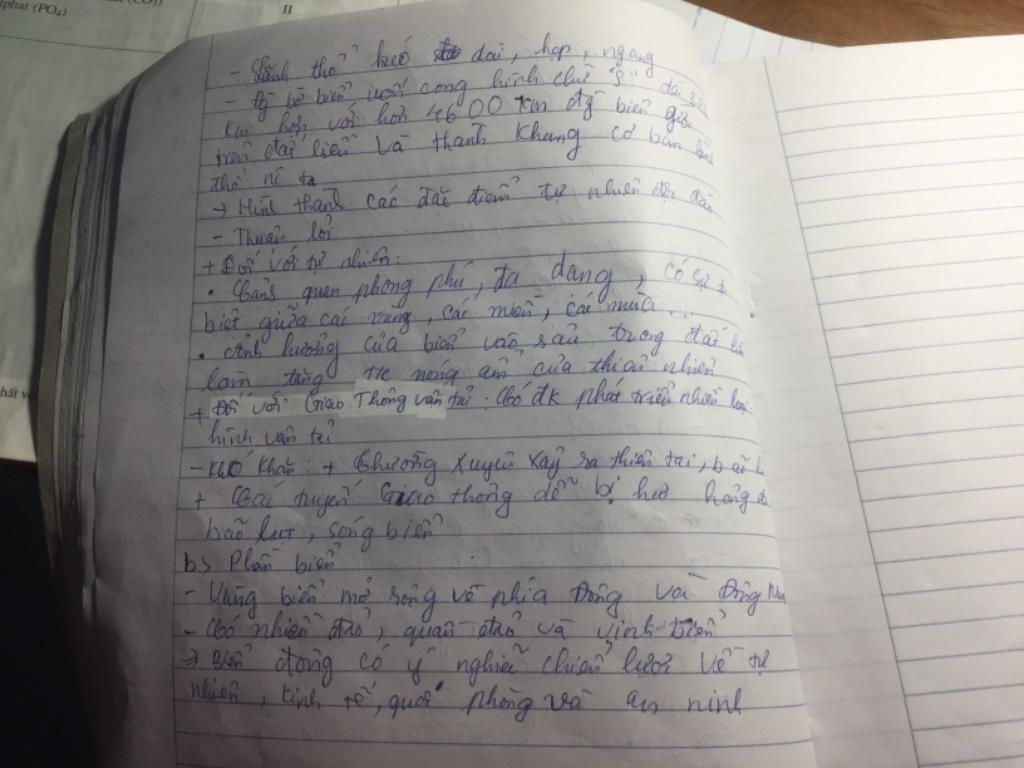 phat (PO₄)
II
hất v
- Lãnh thổ kéo dài, hẹp, ngang
- Đg bờ biển uốn cong hình chữ "S" dài 3,2
km hợp với hơn 4600 km đg biên giới
trên đất liền và thanh khung cơ bản lãnh
thổ nc ta
→ Hình thành các đặc điểm tự nhiên độc đáo
- Thuận lợi
+ Đối với tự nhiên:
• Cảnh quan phong phú, đa dạng, có sự
biệt giữa các vùng, các miền, các mùa...
• Ảnh hưởng của biển vào sâu trong đất
làm tăng t/c nóng ẩm của thiên nhiên
+ Đối với Giao Thông vận tải: Có đk phát triển nhiều loại
hình vận tải
- Khó khăn: + Thường xuyên xảy ra thiên tai, bão
+ Các tuyến Giao thông dễ bị hư hỏng do
bão lụt, sóng biển
b> Phần biển
- Vùng biển mở rộng về phía Đông và Đông Nam
- Có nhiều đảo, quần đảo và vịnh biển
→ Biển đông có ý nghĩa chiến lược về tự
nhiên, kinh tế, quốc phòng và an ninh